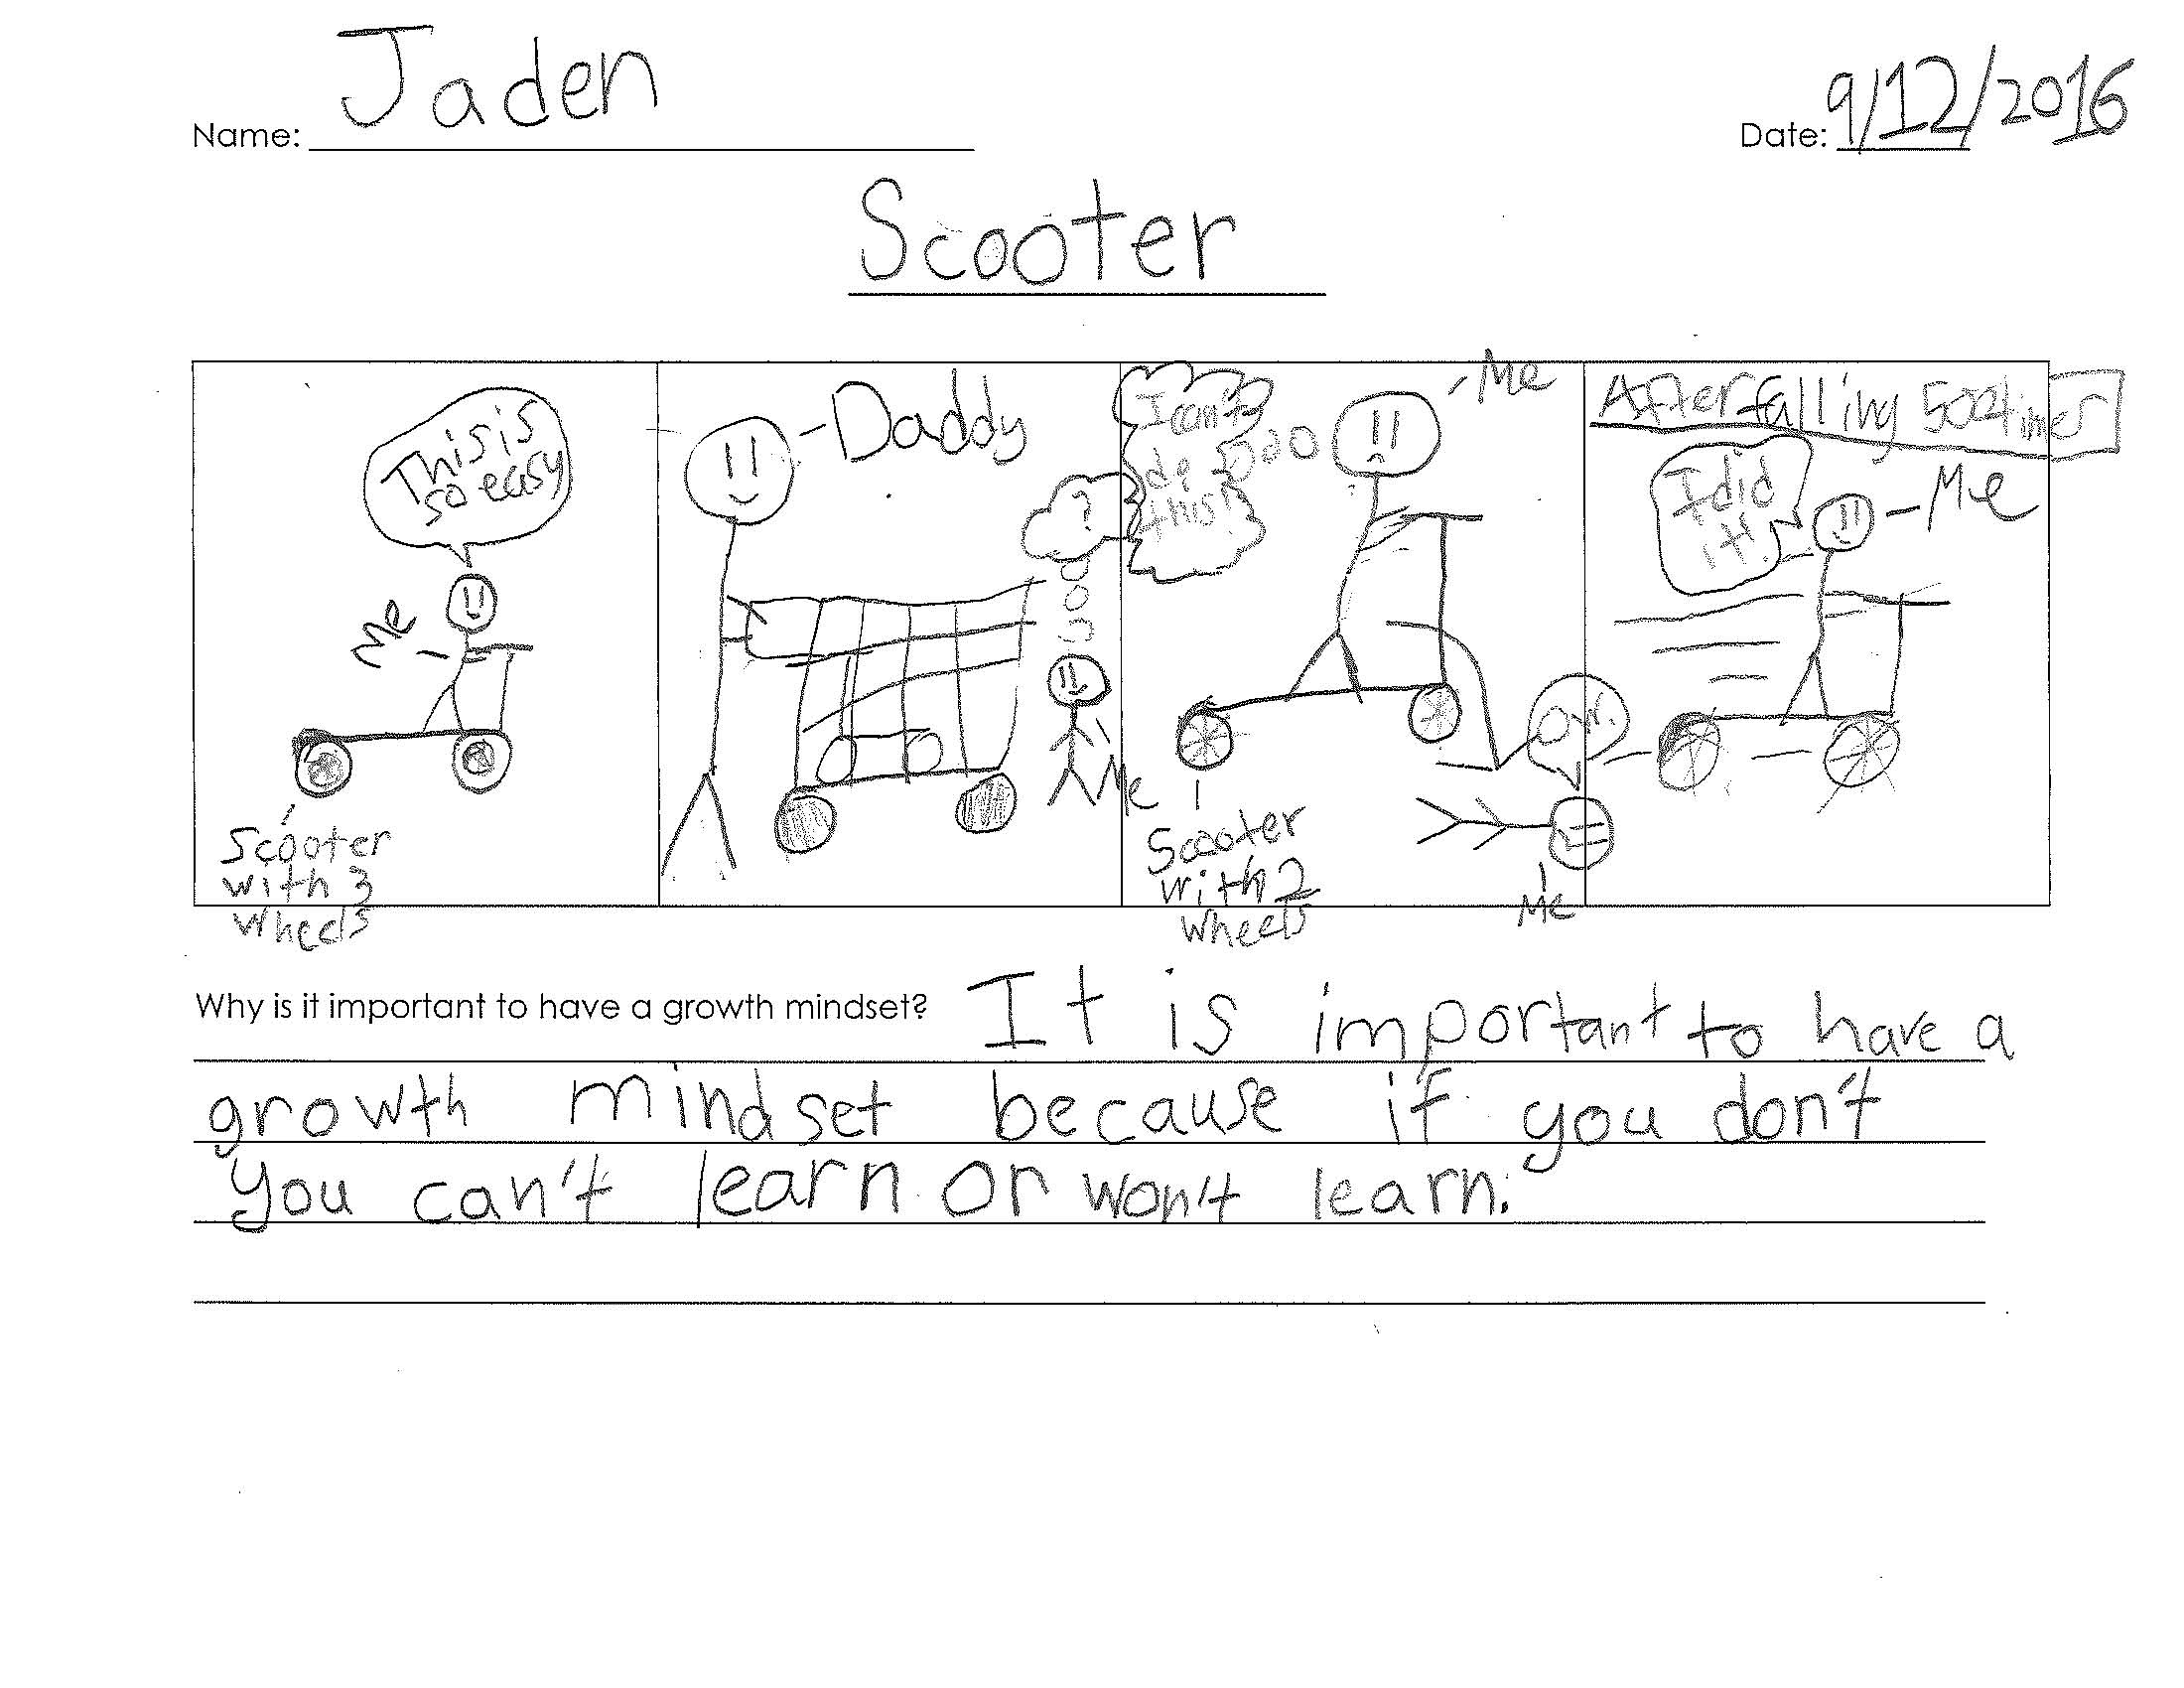 Name: Jaden
Date: 9/12/2016
Scooter
This is
so easy
Me
Scooter
with 3
wheels
Daddy
?
Me
I can't
do
this!
Me
Ow.
Scooter
with 2
wheels
Me
After falling 500 times
I did
it!
Me
Why is it important to have a growth mindset? It is important to have a
growth mindset because if you don't
you can't learn or won't learn.